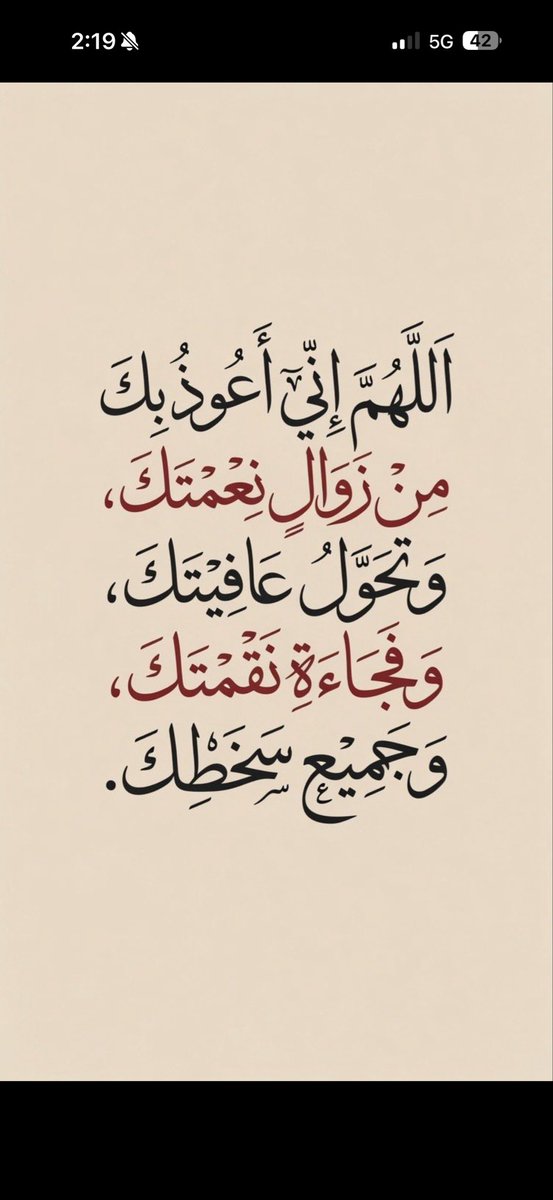 2:19 5G 42
اَللَّهُمَّ إِنِّيٓ أَعُوذُ بِكَ
مِنْ زَوَالٍ نِعْمَتَكَ،
وَتَحَوَّلُ عَافِيْتَكَ،
وَفَجَاءَةِ نَقْمْتَكَ،
وَجَمِيْعِ سَخَطِكَ.